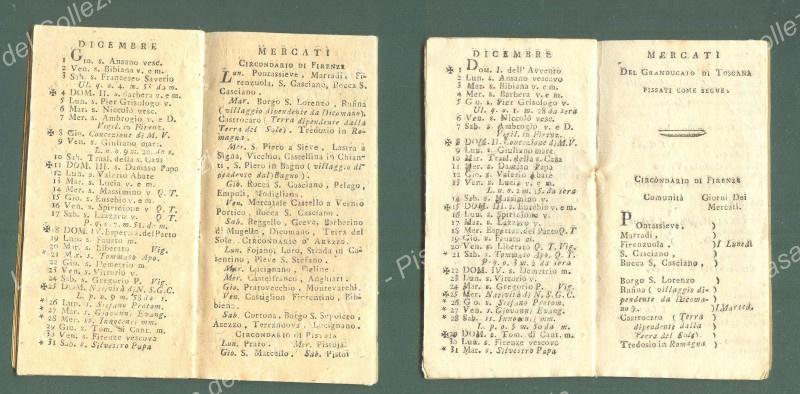 DICEMBRE
1 Gio. s. Ansano vesc.
2 Ven. s. Bibiana v. e m.
3 Sab. s. Francesco Saverio
Ul. q. 2. m. 53 da m.
✠ 4 DOM. II. s. Barbera v. e m.
5 Lun. s. Pier Grisologo v.
6 Mar. s. Niccolò vesc.
7 Mer. s. Ambrogio v. e D.
Vigil. in Firenz.
✠ 8 Gio. Concezione di M. V.
9 Ven. s. Giuliano mart.
10 Sab. Trasl. della s. Casa
✠ 11 DOM. III. s. Damaso Papa
12 Lun. s. Valerio Abate
13 Mar. s. Lucia v. e m.
14 Mer. s. Massimino v. Q. T.
15 Gio. s. Eusebio v. e m.
16 Ven. s. Spiridione v Q. T.
17 Sab. s. Lazzaro v. Q. T.
✠ 18 DOM. IV. Espettaz. del Parto
19 Lun. s. Fausto m.
20 Mar. s. Liberato Vig.
* 21 Mer. s. Tommaso Apo.
22 Gio. s. Demetrio m.
23 Ven. s. Vittorio v.
24 Sab. s. Gregorio P. Vig.
✠ 25 DOM. Natività di N. S. G. C.
* 26 Lun. s. Stefano Protom.
* 27 Mar. s. Giovanni Evang.
* 28 Mer. ss. Innocenti mm.
29 Gio. s. Tom. di Cant. m.
30 Ven. s. Firenze vescovo
* 31 Sab. s. Silvestro Papa
MERCATI
CIRCONDARIO DI FIRENZE
Lun. Pontassieve, Marradi, Fi-
renzuola, S. Casciano, Rocca S.
Casciano.
Mar. Borgo S. Lorenzo, Rufina
(villaggio dipendente da Dicomano)
Castrocaro (Terra dipendente dalla
Terra del Sole). Tredozio in Ro-
magna.
Mer. S. Piero a Sieve, Lastra a
Signa, Vicchio, Castellina in Chian-
ti, S. Piero in Bagno (villaggio di-
pendente dal Bagno).
Gio. Rocca S. Casciano, Pelago,
Empoli, Modigliana.
Ven. Mercatale Castello a Vernio
Portico, Rocca S. Casciano.
Sab. Reggello, Greve, Barberino
di Mugello, Dicomano, Terra del
Sole. CIRCONDARIO D' AREZZO.
Lun. Fojano, Loro, Strada in Ca-
sentino, Pieve S. Stefano.
Mar. Lucignano, Figline.
Mer. Castelfranco, Anghiari.
Gio. Pratovecchio, Montevarchi.
Ven. Castiglion Fiorentino, Bib-
biena.
Sab. Cortona, Borgo S. Sepolcro,
Arezzo, Terranuova, Lucignano.
CIRCONDARIO DI PISTOIA
Lun. Prato. Mer. Pistoja.
Gio. S. Marcello. Sab. Pistoi
DICEMBRE
✠ 1 Dom. I. dell'Avvento
2 Lun. s. Ansano vescovo
3 Mar. s. Bibiana v. e m.
4 Mer. s. Barbera v. e m.
5 Gio. s. Pier Grisologo v.
Ul. q. 0. 1. m. 28 da sera
7 Sab. s. Ambrogio v. e D.
Vigil. in Firenze
✠ 8 DOM. II. Concezione di M. V.
9 Lun. s. Giuliano mart.
10 Mar. Trasl. della s. Casa
11 Mer. s. Damaso Papa
12 Gio. s. Valerio Abate
13 Ven. s. Lucia v. e m.
14 Sab. s. Massimino v.
✠ 15 DOM. III. s. Eusebio v. e m.
16 Lun. s. Spiridione v.
17 Mar. s. Lazzaro v.
18 Mer. Espettaz. del Parto Q T
19 Gio. s. Fausto m.
20 Ven. s. Liberato Q. T. Vig.
* 21 Sab. s. Tommaso Apo. Q. T.
✠ 22 DOM. IV. s. Demetrio m.
23 Lun. s. Vittorio v.
24 Mar. s. Gregorio P. Vig.
✠ 25 Mer. Natività di N. S. G. C.
* 26 Gio. s. Stefano Protom.
* 27 Ven. s. Giovanni Evang.
* 28 Sab. ss. Innocenti mm.
L. p. o. 5 m. 50 da m.
✠ 29 DOM. s. Tom. di Cant. m.
30 Lun. s. Firenze vescovo
* 31 Mar. s. Silvestro Papa
MERCATI
DEL GRANDUCATO DI TOSCANA
FISSATI COME SEGUE.
CIRCONDARIO DI FIRENZE
Comunità Giorni Dei
Mercati.
Pontassieve, )
Marradi, )
Firenzuola, ) I Lunedì
S. Casciano, )
Rocca S. Casciano, )
Borgo S. Lorenzo )
Rufina (villaggio di- )
pendente da Dicoma- )
no). ) I Marted.
Castrocaro (Terra )
dipendente dalla )
Terra del Sole). )
Tredozio in Romagna )